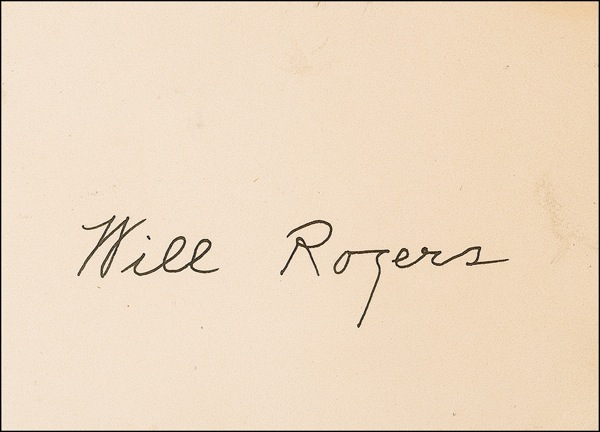 Will Rogers